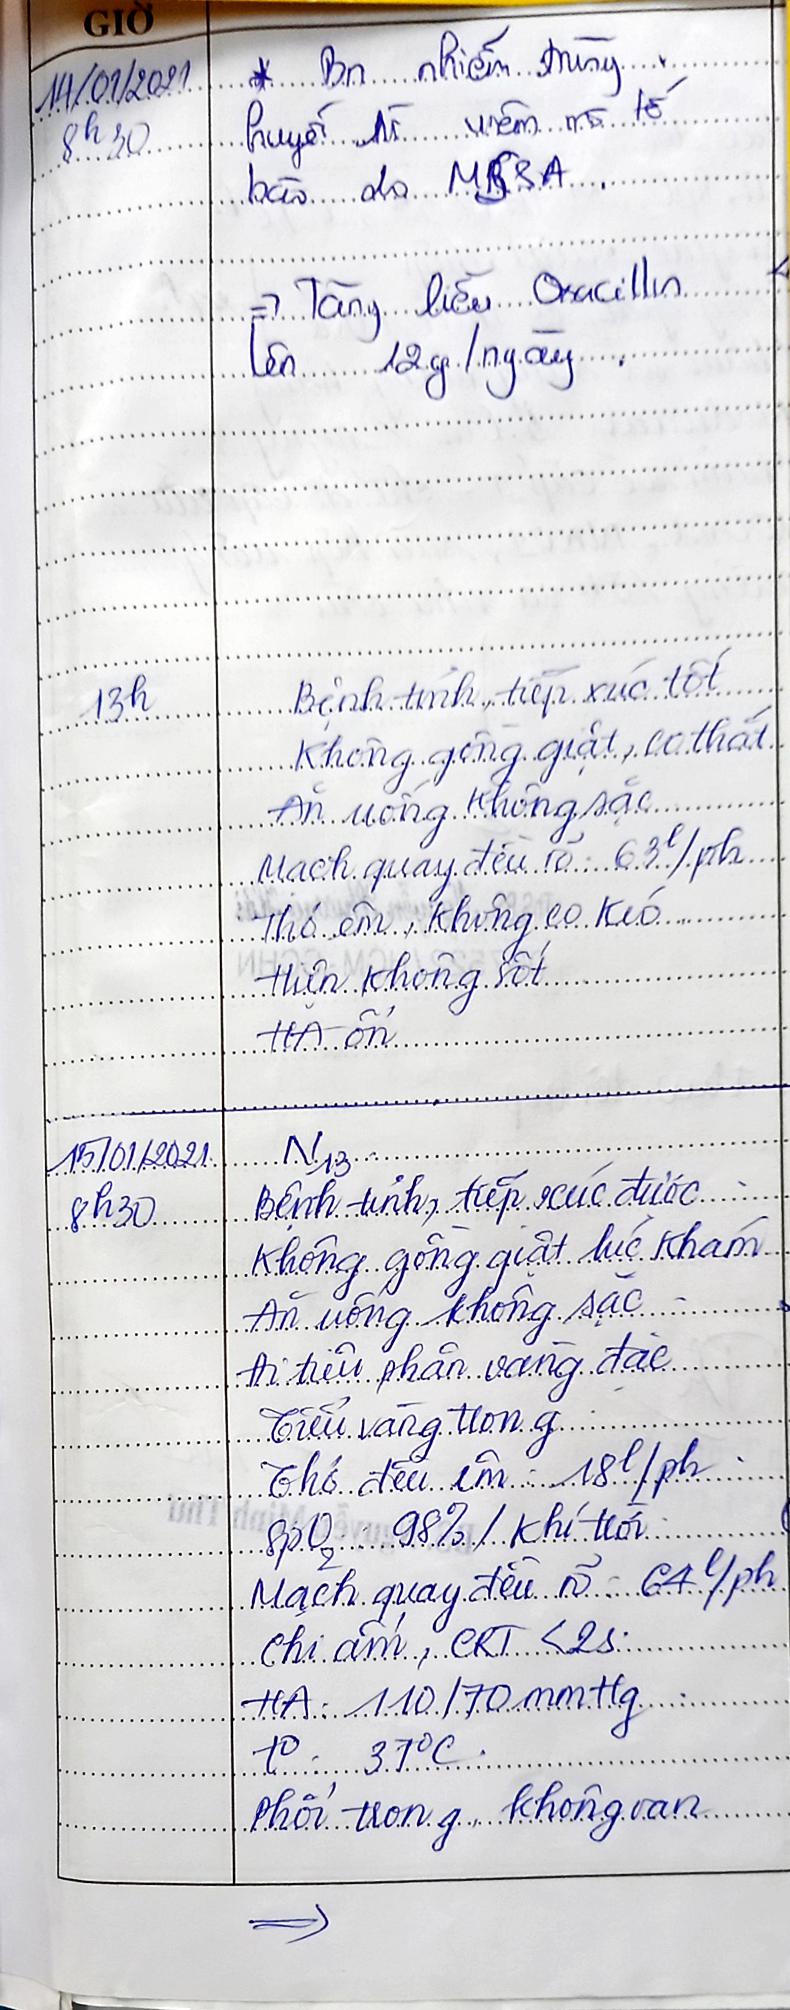 GIỜ
14/01/2021
8h30
* Bn nhiễm trùng
huyết từ viêm mô tế
bào do MSSA.
=> Tăng liều Oxacillin
lên 12g/ngày.
13h
Bệnh tỉnh, tiếp xúc tốt
Không gồng giật, co thắt
Ăn uống không sặc
Mạch quay đều rõ: 63 l/ph
Thở êm, không co kéo
Hiện không sốt
HA ổn
15/01/2021
8h30
N13
Bệnh tỉnh, tiếp xúc được
Không gồng giật lúc khám
Ăn uống không sặc
Đi tiêu phân vàng đặc
Tiểu vàng trong
Thở đều êm: 18 l/ph
SpO2: 98% / Khí trời
Mạch quay đều rõ: 64 l/ph
Chi ấm, CRT <2s.
HA: 110/70 mmHg
t°: 37°C.
Phổi trong, không ran
=>